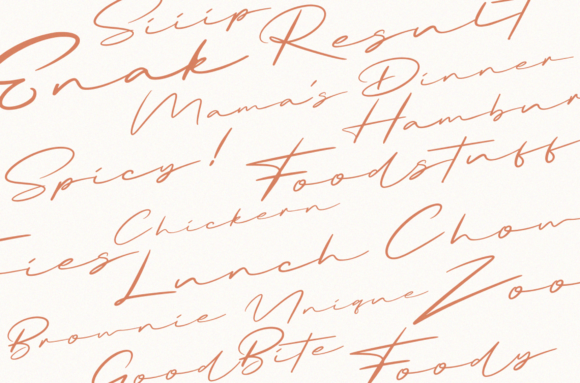 Siiip
Enak Result
Mama's Dinner
Hambur
Spicy! Foodstuff
Chickern
ies Lunch Chow
Brownie Unique Zoo
GoodBite Foody